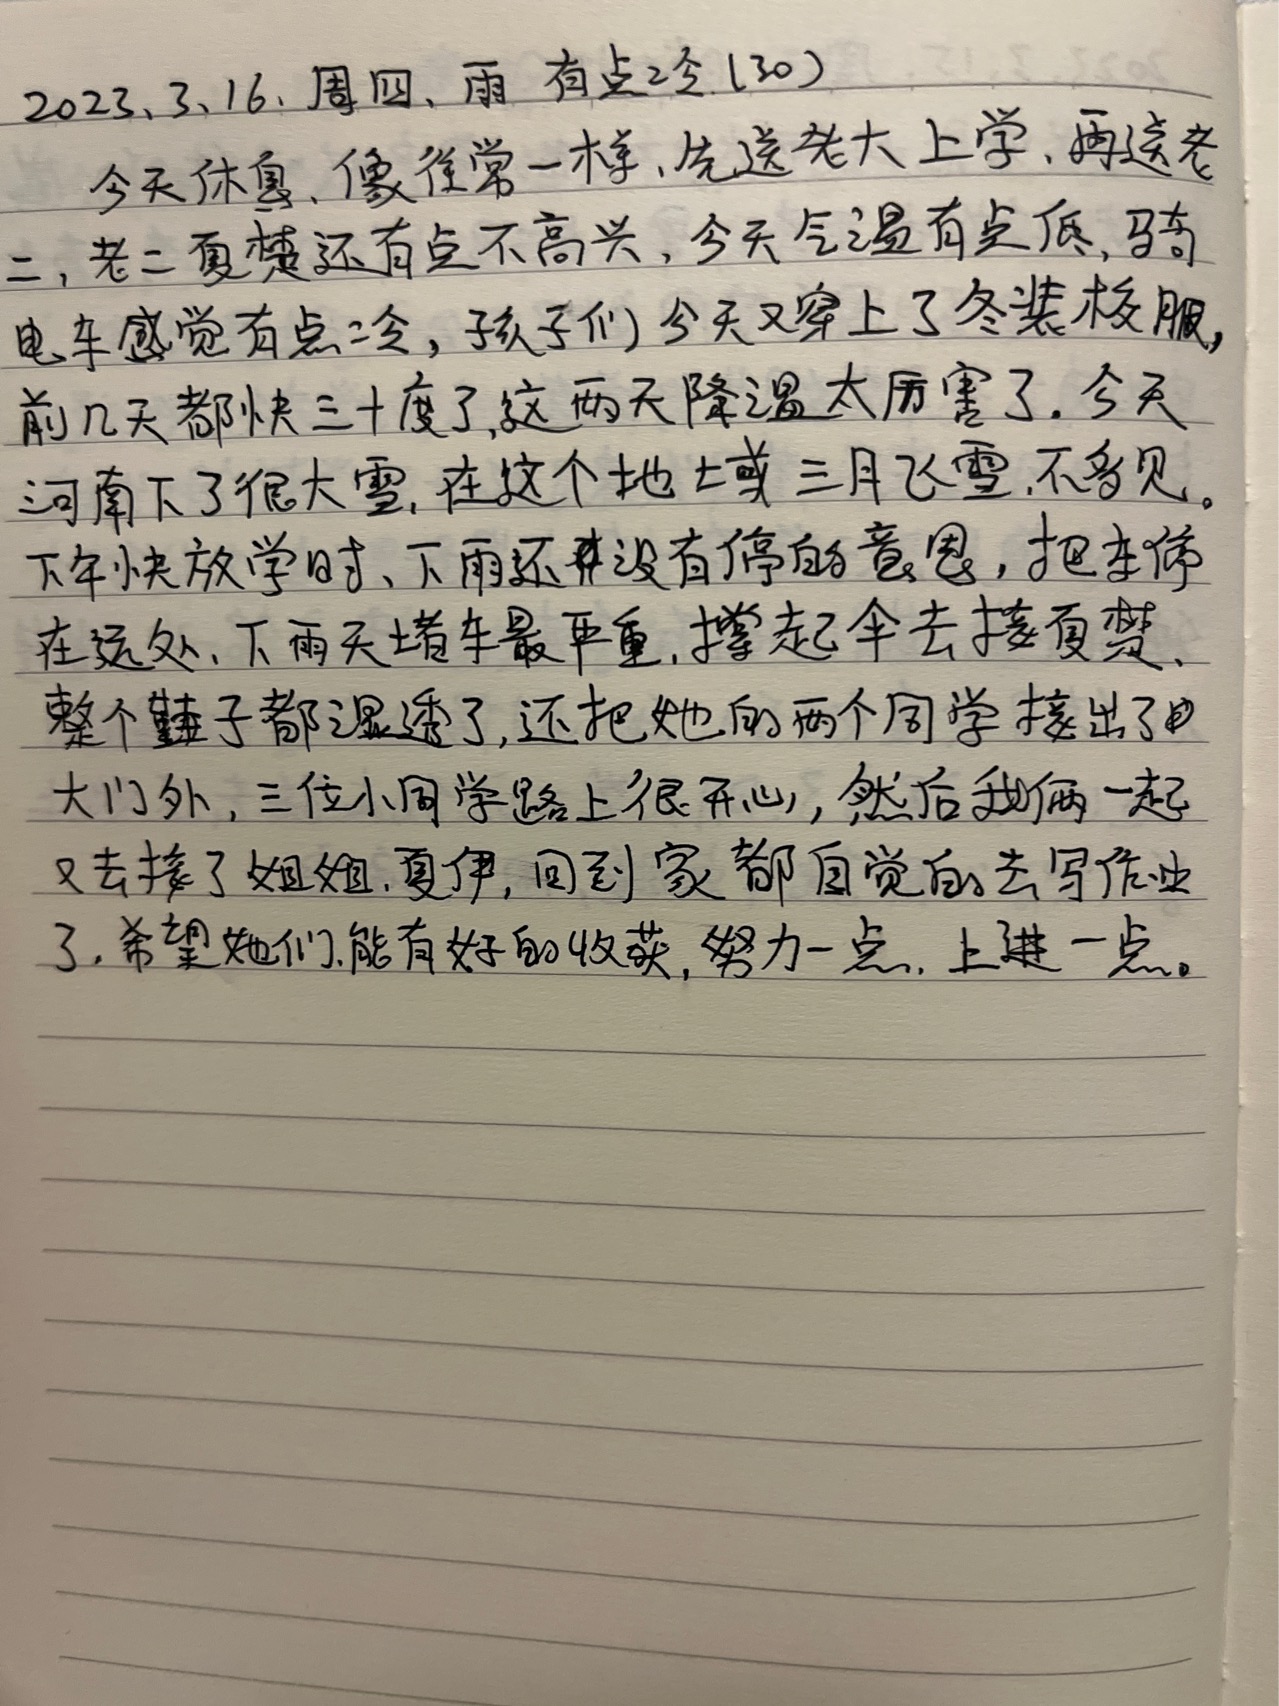 2023、3、16、周四、雨 有点冷(30)
今天休息、像往常一样、先送老大上学、再送老
二，老二夏楚还有点不高兴，今天气温有点低，骑
电车感觉有点冷，孩子们今天又穿上了冬装校服，
前几天都快三十度了，这两天降温太厉害了。今天
河南下了很大雪，在这个地域三月飞雪，不多见。
下午快放学时、下雨还没有停的意思，把车停
在远处、下雨天堵车最严重，撑起伞去接夏楚、
整个鞋子都湿透了，还把她的两个同学接出了
大门外，三位小同学路上很开心，然后我俩一起
又去接了姐姐，夏伊，回到家都自觉的去写作业
了，希望她们能有好的收获，努力一点，上进一点。